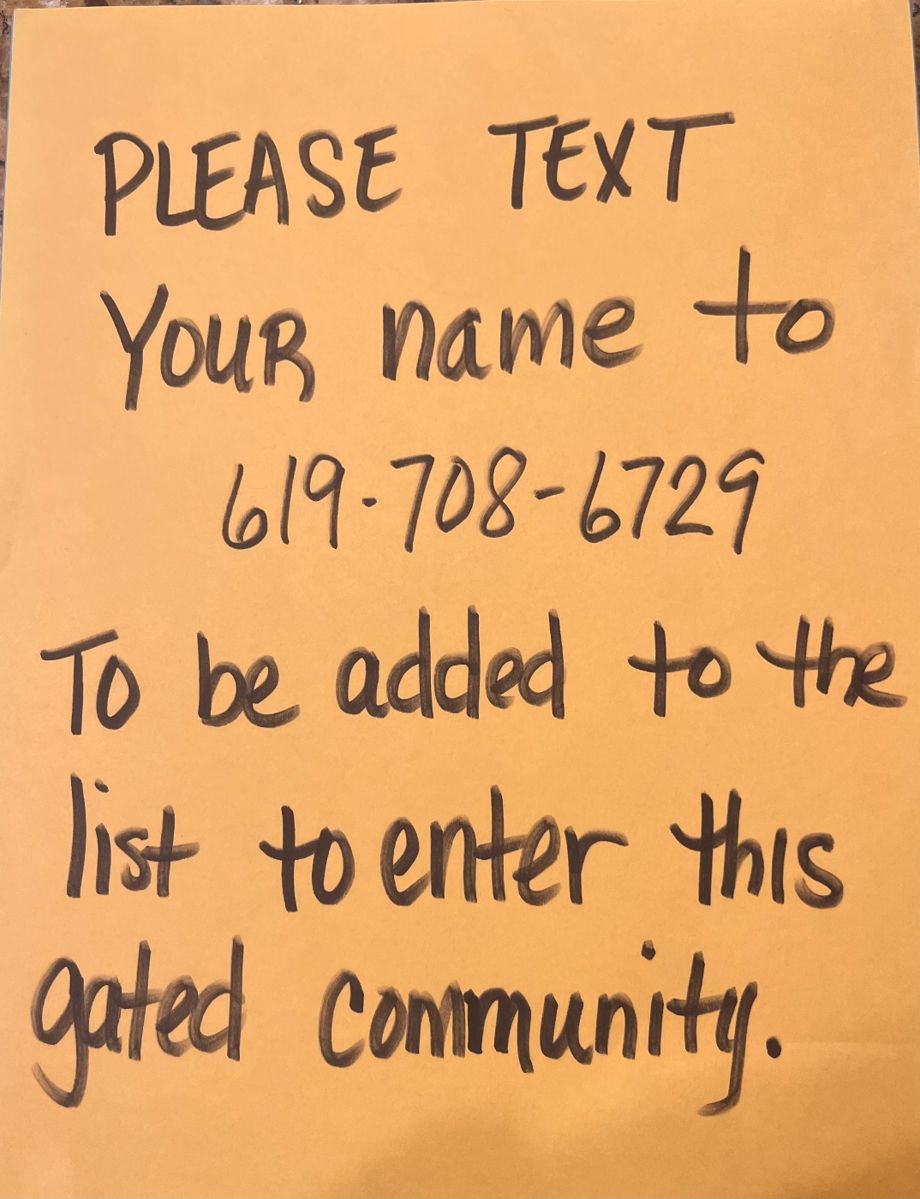 PLEASE TEXT
YOUR name to
619-708-6729
To be added to the
list to enter this
gated community.